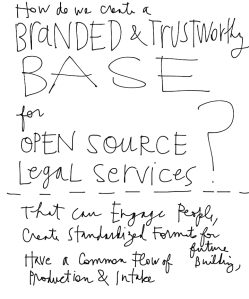 How do we create a
BRANDED & TRUSTWORTHY
BASE
for
OPEN SOURCE
LEGAL SERVICES ?
That can Engage People,
Create Standardized Formats for
future
Have a Common Flow of Building,
Production & Intake